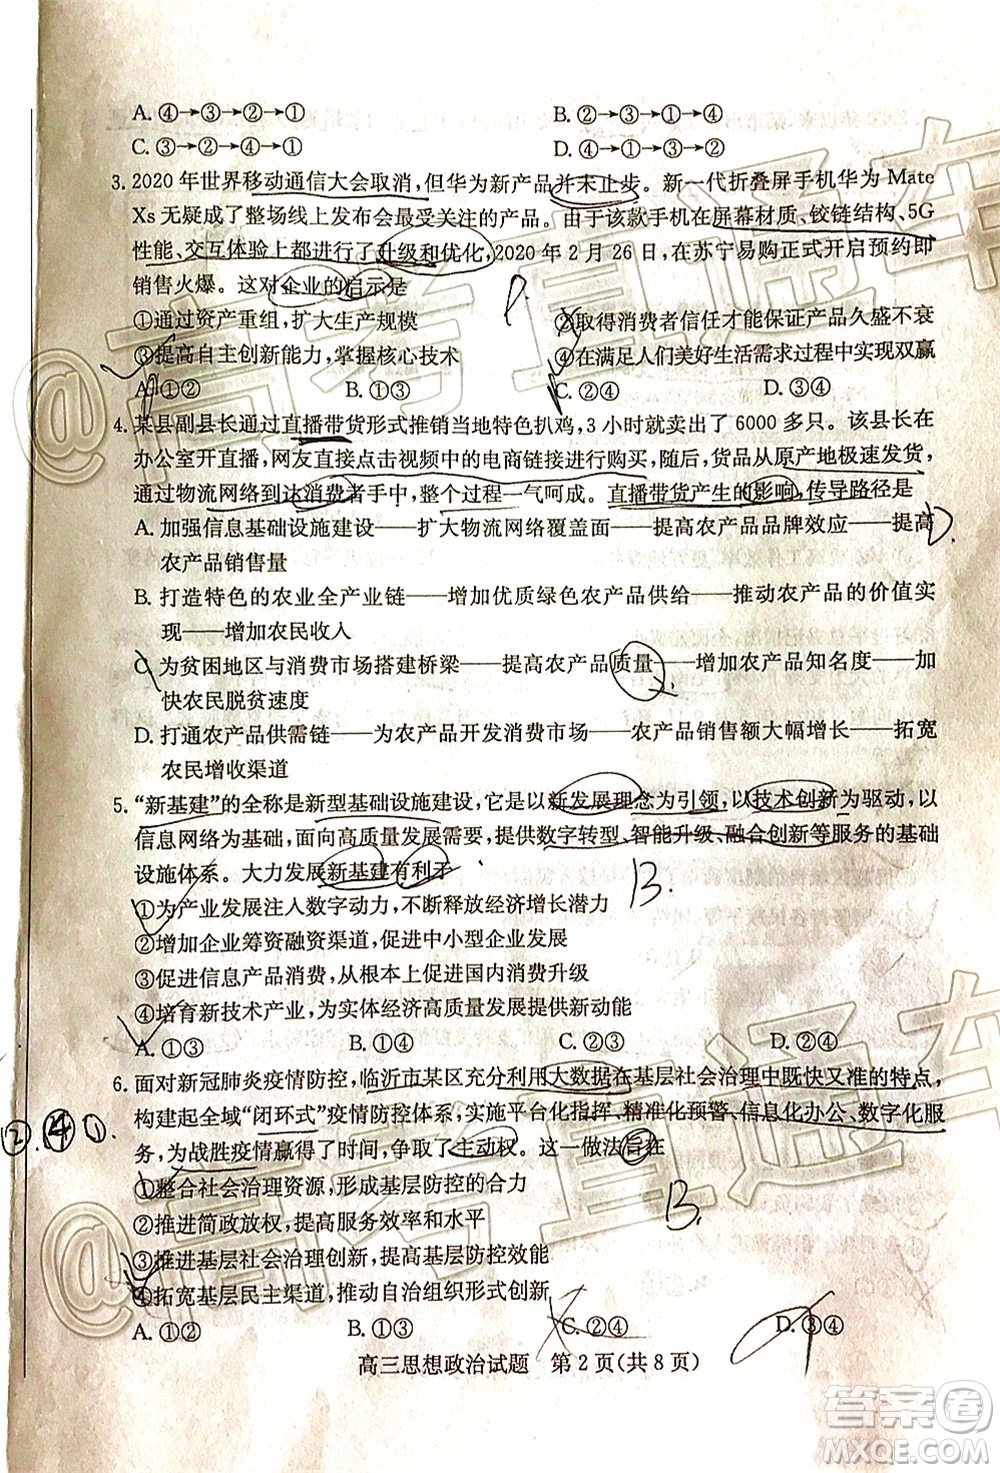 A. ④→③→②→①
B. ②→③→①→④
C. ③→②→④→①
D. ④→①→②→③
3. 2020年世界移动通信大会取消,但华为新产品并未止步。新一代折叠屏手机华为Mate
Xs无疑成了整场线上发布会最受关注的产品。由于该款手机在屏幕材质、铰链结构、5G
性能、交互体验上都进行了升级和优化,2020年2月26日,在苏宁易购正式开启预约即
销售火爆。这对企业的启示是
①通过资产重组,扩大生产规模
②取得消费者信任才能保证产品久盛不衰
③提高自主创新能力,掌握核心技术
④在满足人们美好生活需求过程中实现双赢
A. ①②
B. ①③
C. ②④
D. ③④
4. 某县副县长通过直播带货形式推销当地特色扒鸡,3小时就卖出了6000多只。该县长在
办公室开直播,网友直接点击视频中的电商链接进行购买,随后,货品从原产地极速发货,
通过物流网络到达消费者手中,整个过程一气呵成。直播带货产生的影响,传导路径是
A. 加强信息基础设施建设——扩大物流网络覆盖面——提高农产品品牌效应——提高
农产品销售量
B. 打造特色的农业全产业链——增加优质绿色农产品供给——推动农产品的价值实
现——增加农民收入
C. 为贫困地区与消费市场搭建桥梁——提高农产品质量——增加农产品知名度——加
快农民脱贫速度
D. 打通农产品供需链——为农产品开发消费市场——农产品销售额大幅增长——拓宽
农民增收渠道
D.
5. “新基建”的全称是新型基础设施建设,它是以新发展理念为引领,以技术创新为驱动,以
信息网络为基础,面向高质量发展需要,提供数字转型、智能升级、融合创新等服务的基础
设施体系。大力发展新基建有利于
B.
①为产业发展注入数字动力,不断释放经济增长潜力
②增加企业筹资融资渠道,促进中小型企业发展
③促进信息产品消费,从根本上促进国内消费升级
④培育新技术产业,为实体经济高质量发展提供新动能
A. ①③
B. ①④
C. ②③
D. ②④
6. 面对新冠肺炎疫情防控,临沂市某区充分利用大数据在基层社会治理中既快又准的特点,
构建起全域“闭环式”疫情防控体系,实施平台化指挥、精准化预警、信息化办公、数字化服
务,为战胜疫情赢得了时间,争取了主动权。这一做法旨在
②.④①.
①整合社会治理资源,形成基层防控的合力
②推进简政放权,提高服务效率和水平
B.
③推进基层社会治理创新,提高基层防控效能
④拓宽基层民主渠道,推动自治组织形式创新
A. ①②
B. ①③
C. ②④
D. ③④
高三思想政治试题 第2页(共8页)
@高考直通车
@高考直通车
答案卷
MXQE.COM